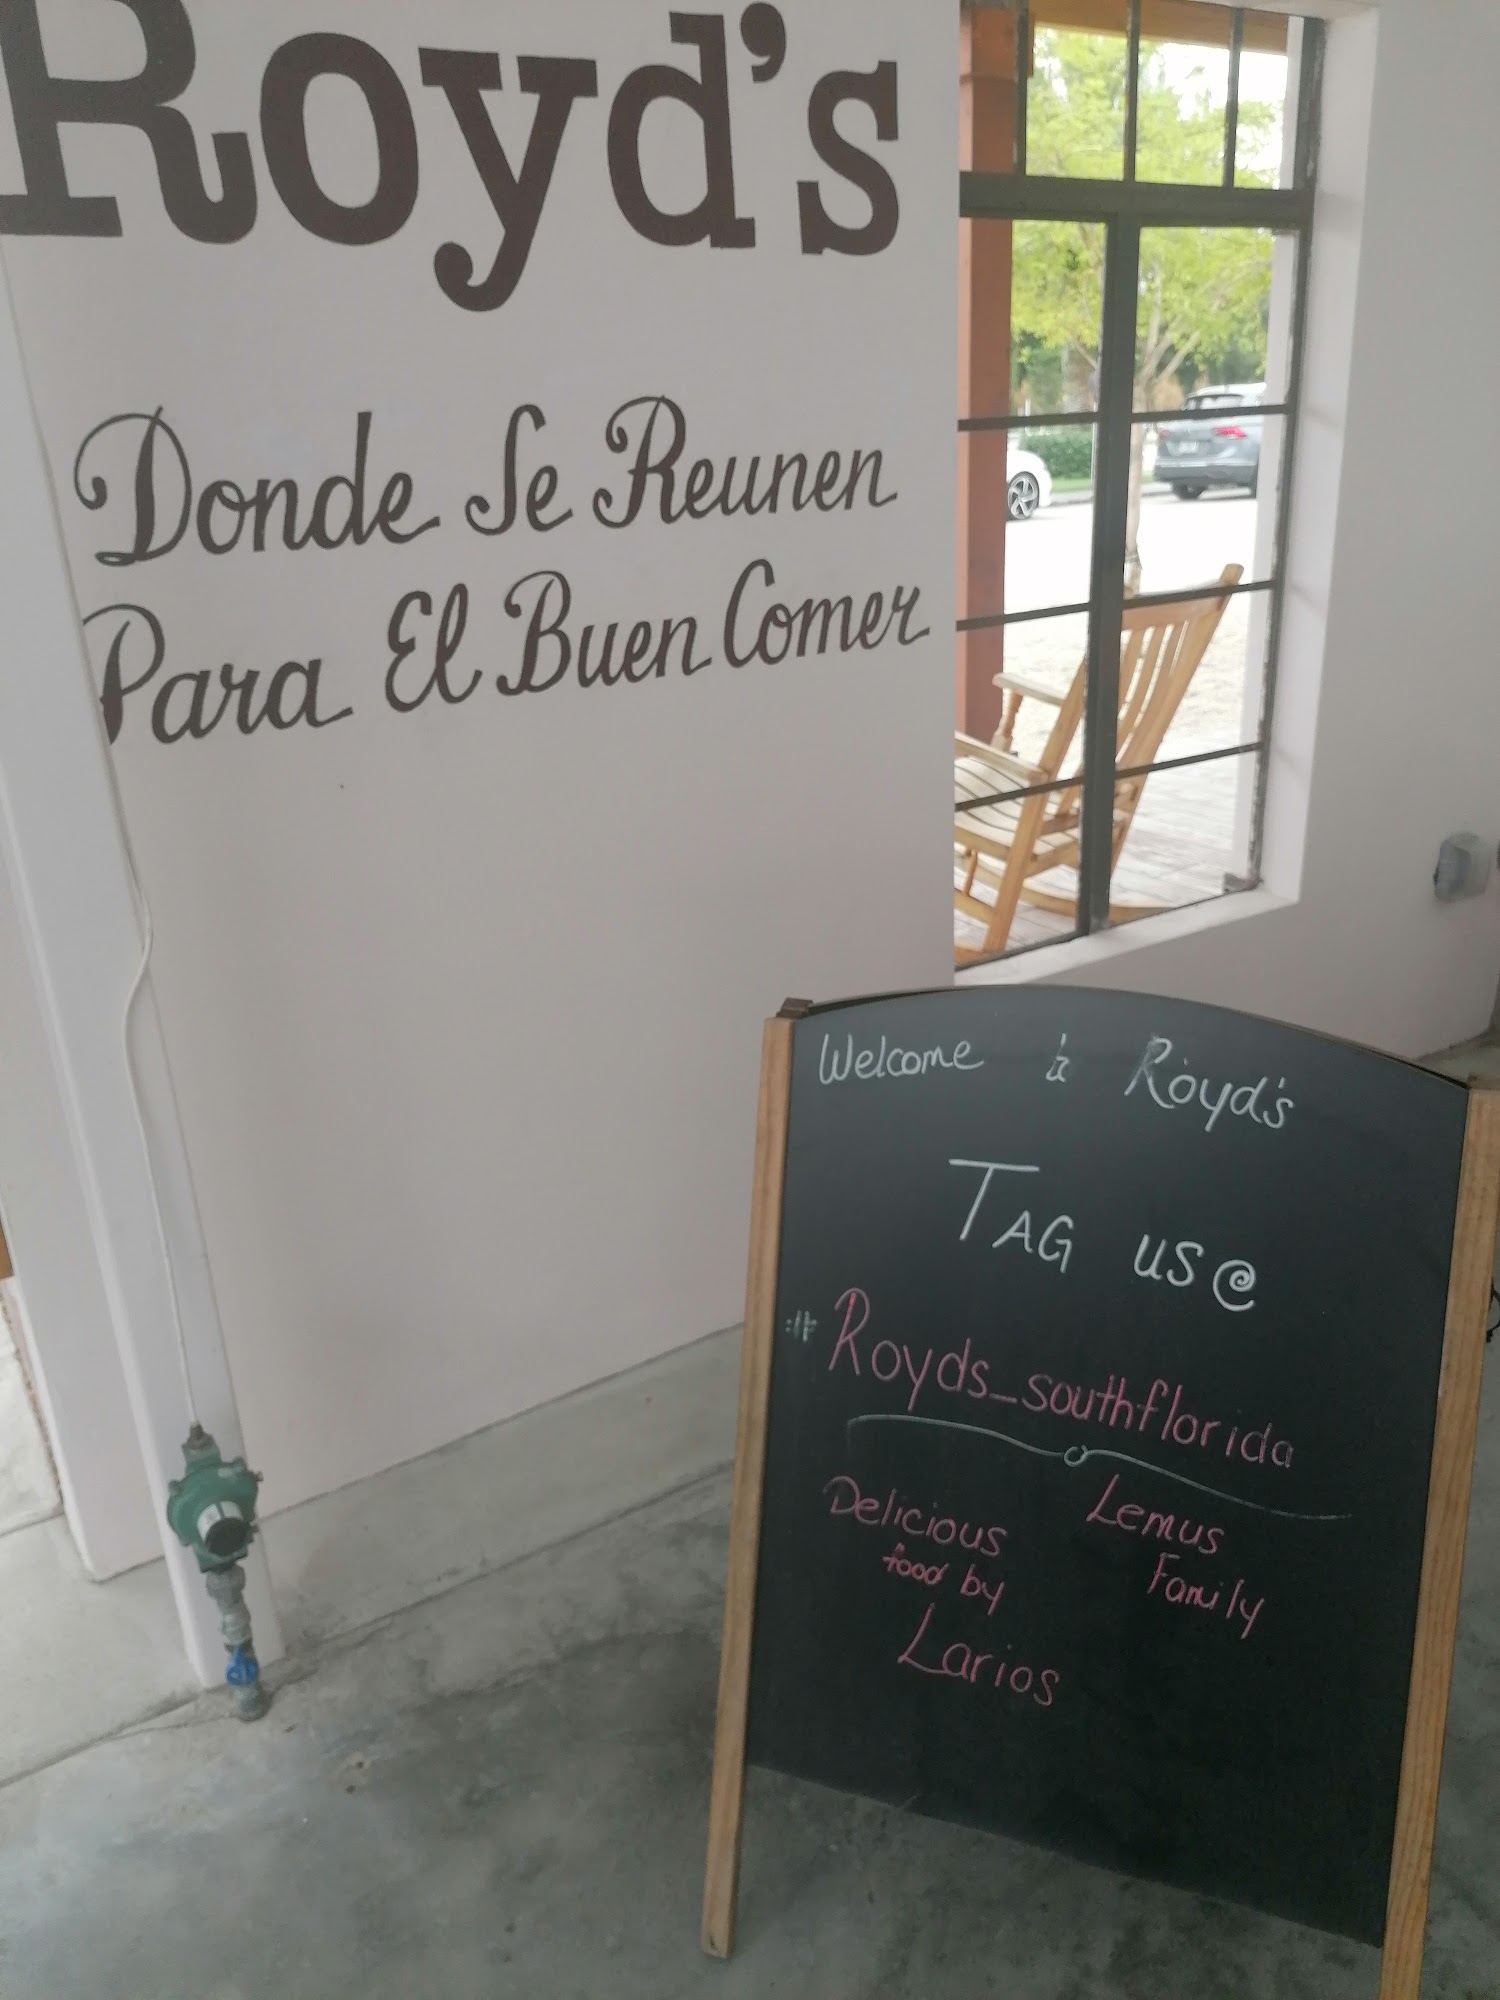 Royd's
Donde Se Reunen
Para El Buen Comer
Welcome to Royd's
TAG US @
# Royds_southflorida
Delicious
food by
Larios
Lemus
Family